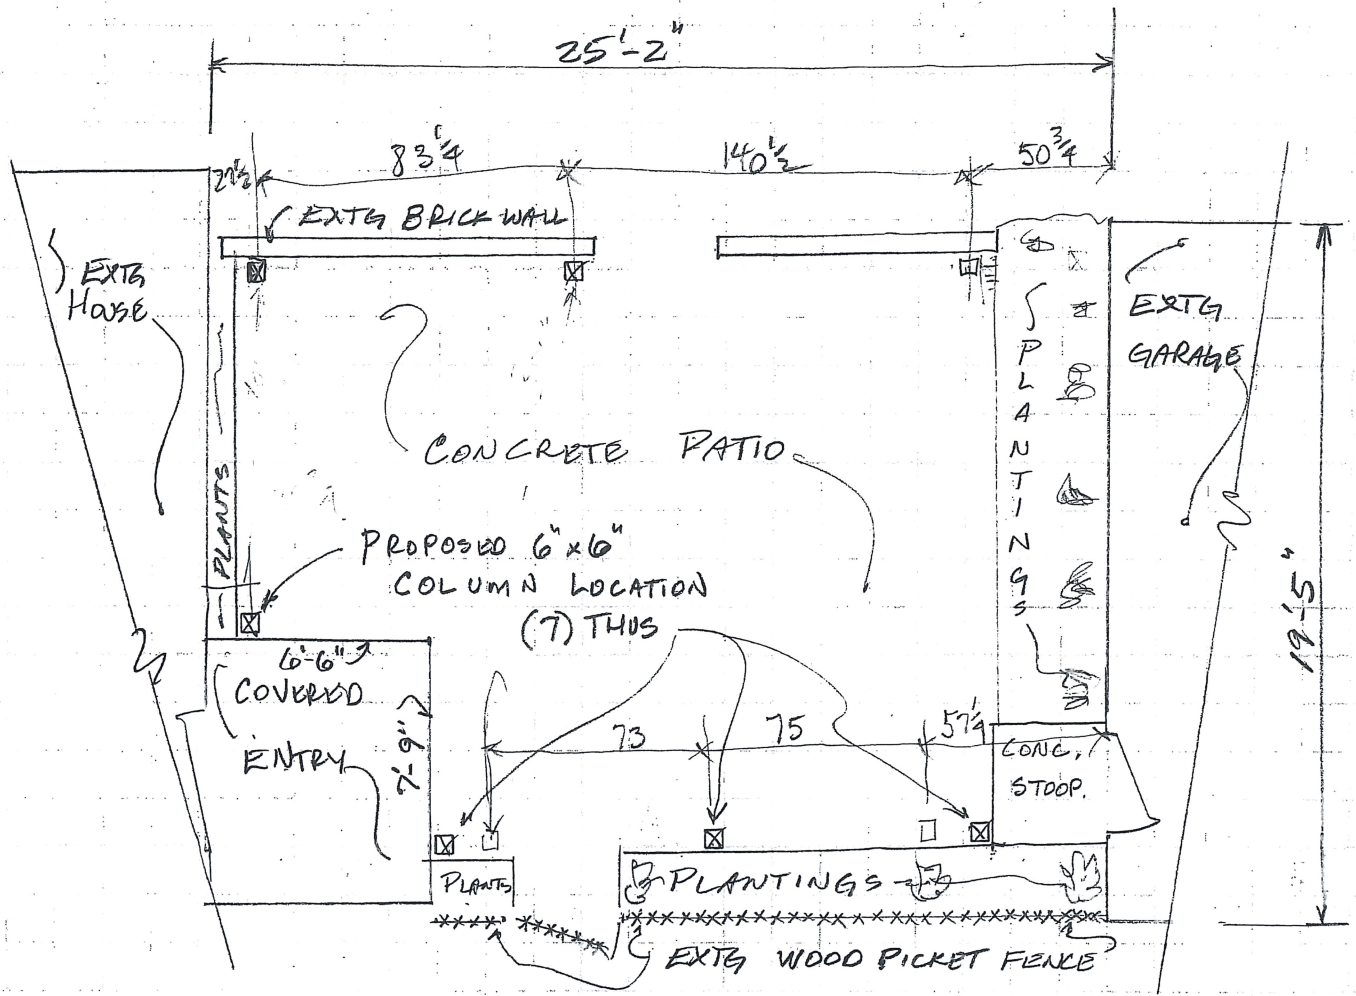 25'-2"
27 1/2 83 1/4 140 1/2 50 3/4
EXTG BRICK WALL
EXTG
HOUSE
EXTG
GARAGE
PLANTINGS
CONCRETE PATIO
PLANTS
PROPOSED 6"x6"
COLUMN LOCATION
(7) THUS
19'-5"
6'-6"
COVERED
ENTRY
7'-9"
73 75 57 1/4
CONC.
STOOP.
PLANTS
PLANTINGS
EXTG WOOD PICKET FENCE